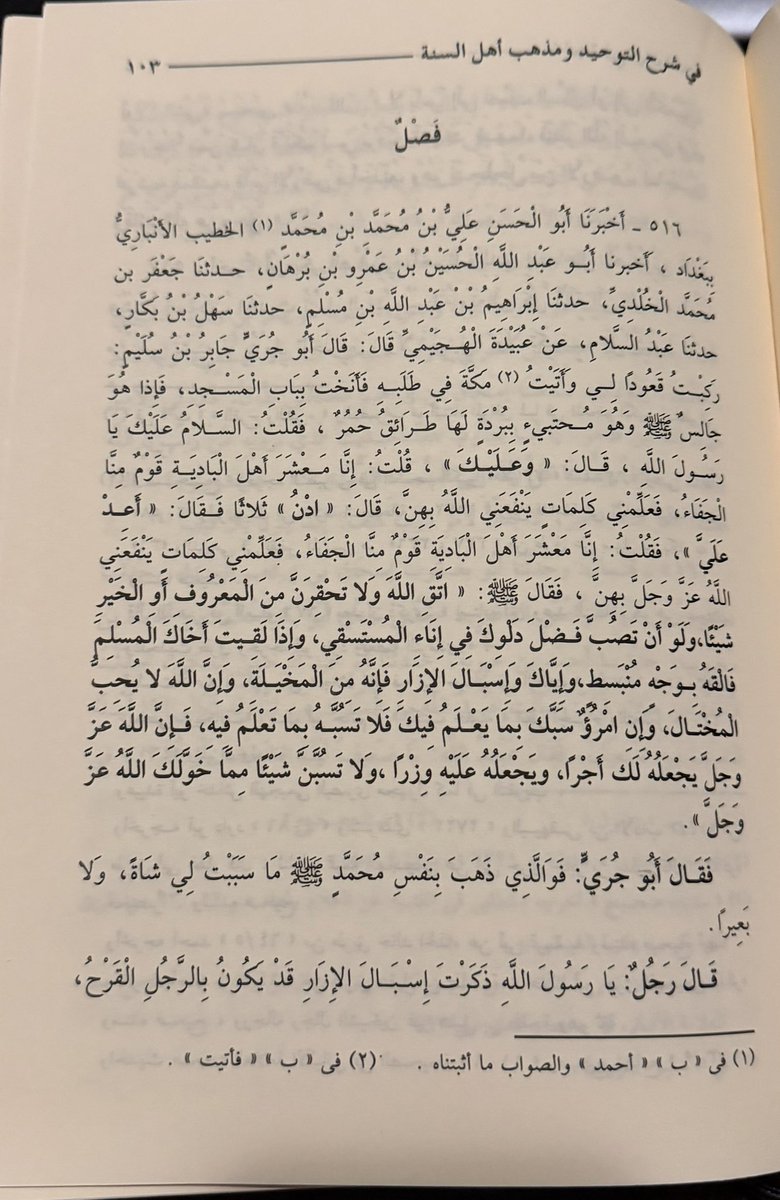 في شرح التوحيد ومذهب أهل السنة ١٠٣
فَصْلٌ
٥١٦ ـ أَخْبَرَنَا أَبُو الْحَسَنِ عَلِيُّ بْنُ مُحَمَّدِ بْنِ مُحَمَّدٍ (١) الخطيب الأَنْبَارِيُّ
بِبَغْدَاد ، أخبرنا أَبُو عَبْدِ اللَّهِ الْحُسَيْنُ بْنُ عَمْرِو بْنِ بُرْهَانٍ، حدثنا جَعْفَر بن
مُحَمَّد الْخُلْدِيِّ، حدثنا إِبْرَاهِيمُ بْنُ عَبْدِ اللَّهِ بْنِ مُسْلِمٍ، حدثنا سَهْلُ بْنُ بَكَّارٍ،
حدثنا عَبْدُ السَّلَامِ، عَنْ عُبَيْدَةَ الْهُجَيْمِيِّ قَالَ: قَالَ أَبُو جُرَيٍّ جَابِرُ بْنُ سُلَيْمٍ:
رَكِبْتُ قَعُودًا لِي وَأَتَيْتُ (٢) مَكَّةَ فِي طَلَبِهِ فَأَنَخْتُ بِبَابِ الْمَسْجِدِ، فَإِذَا هُوَ
جَالِسٌ ﷺ وَهُوَ مُحتَبِيءٍ بِبُرْدَةٍ لَهَا طَرَائِقُ حُمُرٌ ، فَقُلْتُ: السَّلَامُ عَلَيْكَ يَا
رَسُولَ اللَّهِ ، قَالَ: « وَعَلَيْكَ » ، قُلْتُ: إِنَّا مَعْشَرَ أَهْلَ الْبَادِيَةِ قَوْمٌ مِنَّا
الْجَفَاءُ، فَعَلِّمْنِي كَلِمَاتٍ يَنْفَعَنِي اللَّهُ بِهِنَّ، قَالَ: « ادْنُ » ثَلَاثًا فَقَالَ: « أَعدْ
عَلَيَّ »، فَقُلْتُ: إِنَّا مَعْشَرَ أَهْلَ الْبَادِيَةِ قَوْمٌ مِنَّا الْجَفَاءُ، فَعَلِّمْنِي كَلِمَاتٍ يَنْفَعَنِي
اللَّهُ عَزَّ وَجَلَّ بِهِنَّ ، فَقَالَ ﷺ: « اتَّقِ اللَّهَ وَلَا تَحْقِرَنَّ مِنَ الْمَعْرُوفِ أَوِ الْخَيْرِ
شَيْئًا،وَلَوْ أَنْ تَصُبَّ فَضْلَ دَلْوِكَ فِي إِنَاءِ الْمُسْتَسْقِي، وَإِذَا لَقِيتَ أَخَاكَ الْمُسْلِمَ
فَالْقَهُ بِوَجْهٍ مُنْبَسطٍ،وَإِيَّاكَ وَإِسْبَالَ الإِزَارِ فَإِنَّهُ مِنَ الْمَخْيَلَةِ، وَإِنَّ اللَّهَ لَا يُحبُّ
الْمُخْتَالَ، وَإِنِ امْرُؤٌ سَبَّكَ بِمَا يَعْلَمُ فِيكَ فَلَا تَسُبَّهُ بِمَا تَعْلَمُ فِيهِ، فَإِنَّ اللَّهَ عَزَّ
وَجَلَّ يَجْعَلُهُ لَكَ أَجْرًا، وَيَجْعَلُهُ عَلَيْهِ وِزْرًا ،وَلَا تَسُبَّنَّ شَيْئًا مِمَّا خَوَّلَكَ اللَّهُ عَزَّ
وَجَلَّ ».
فَقَالَ أَبُو جُرَيٍّ: فَوَالَّذِي ذَهَبَ بِنَفْسِ مُحَمَّدٍ ﷺ مَا سَبَبْتُ لِي شَاةً، وَلَا
بَعِيرًا.
قَالَ رَجُلٌ: يَا رَسُولَ اللَّهِ ذَكَرْتَ إِسْبَالَ الإِزَارِ قَدْ يَكُونُ بِالرَّجُلِ الْقَرْحُ،
(١) في « ب » « أحمد » والصواب ما أثبتناه . (٢) في « ب » « فأتيت » .